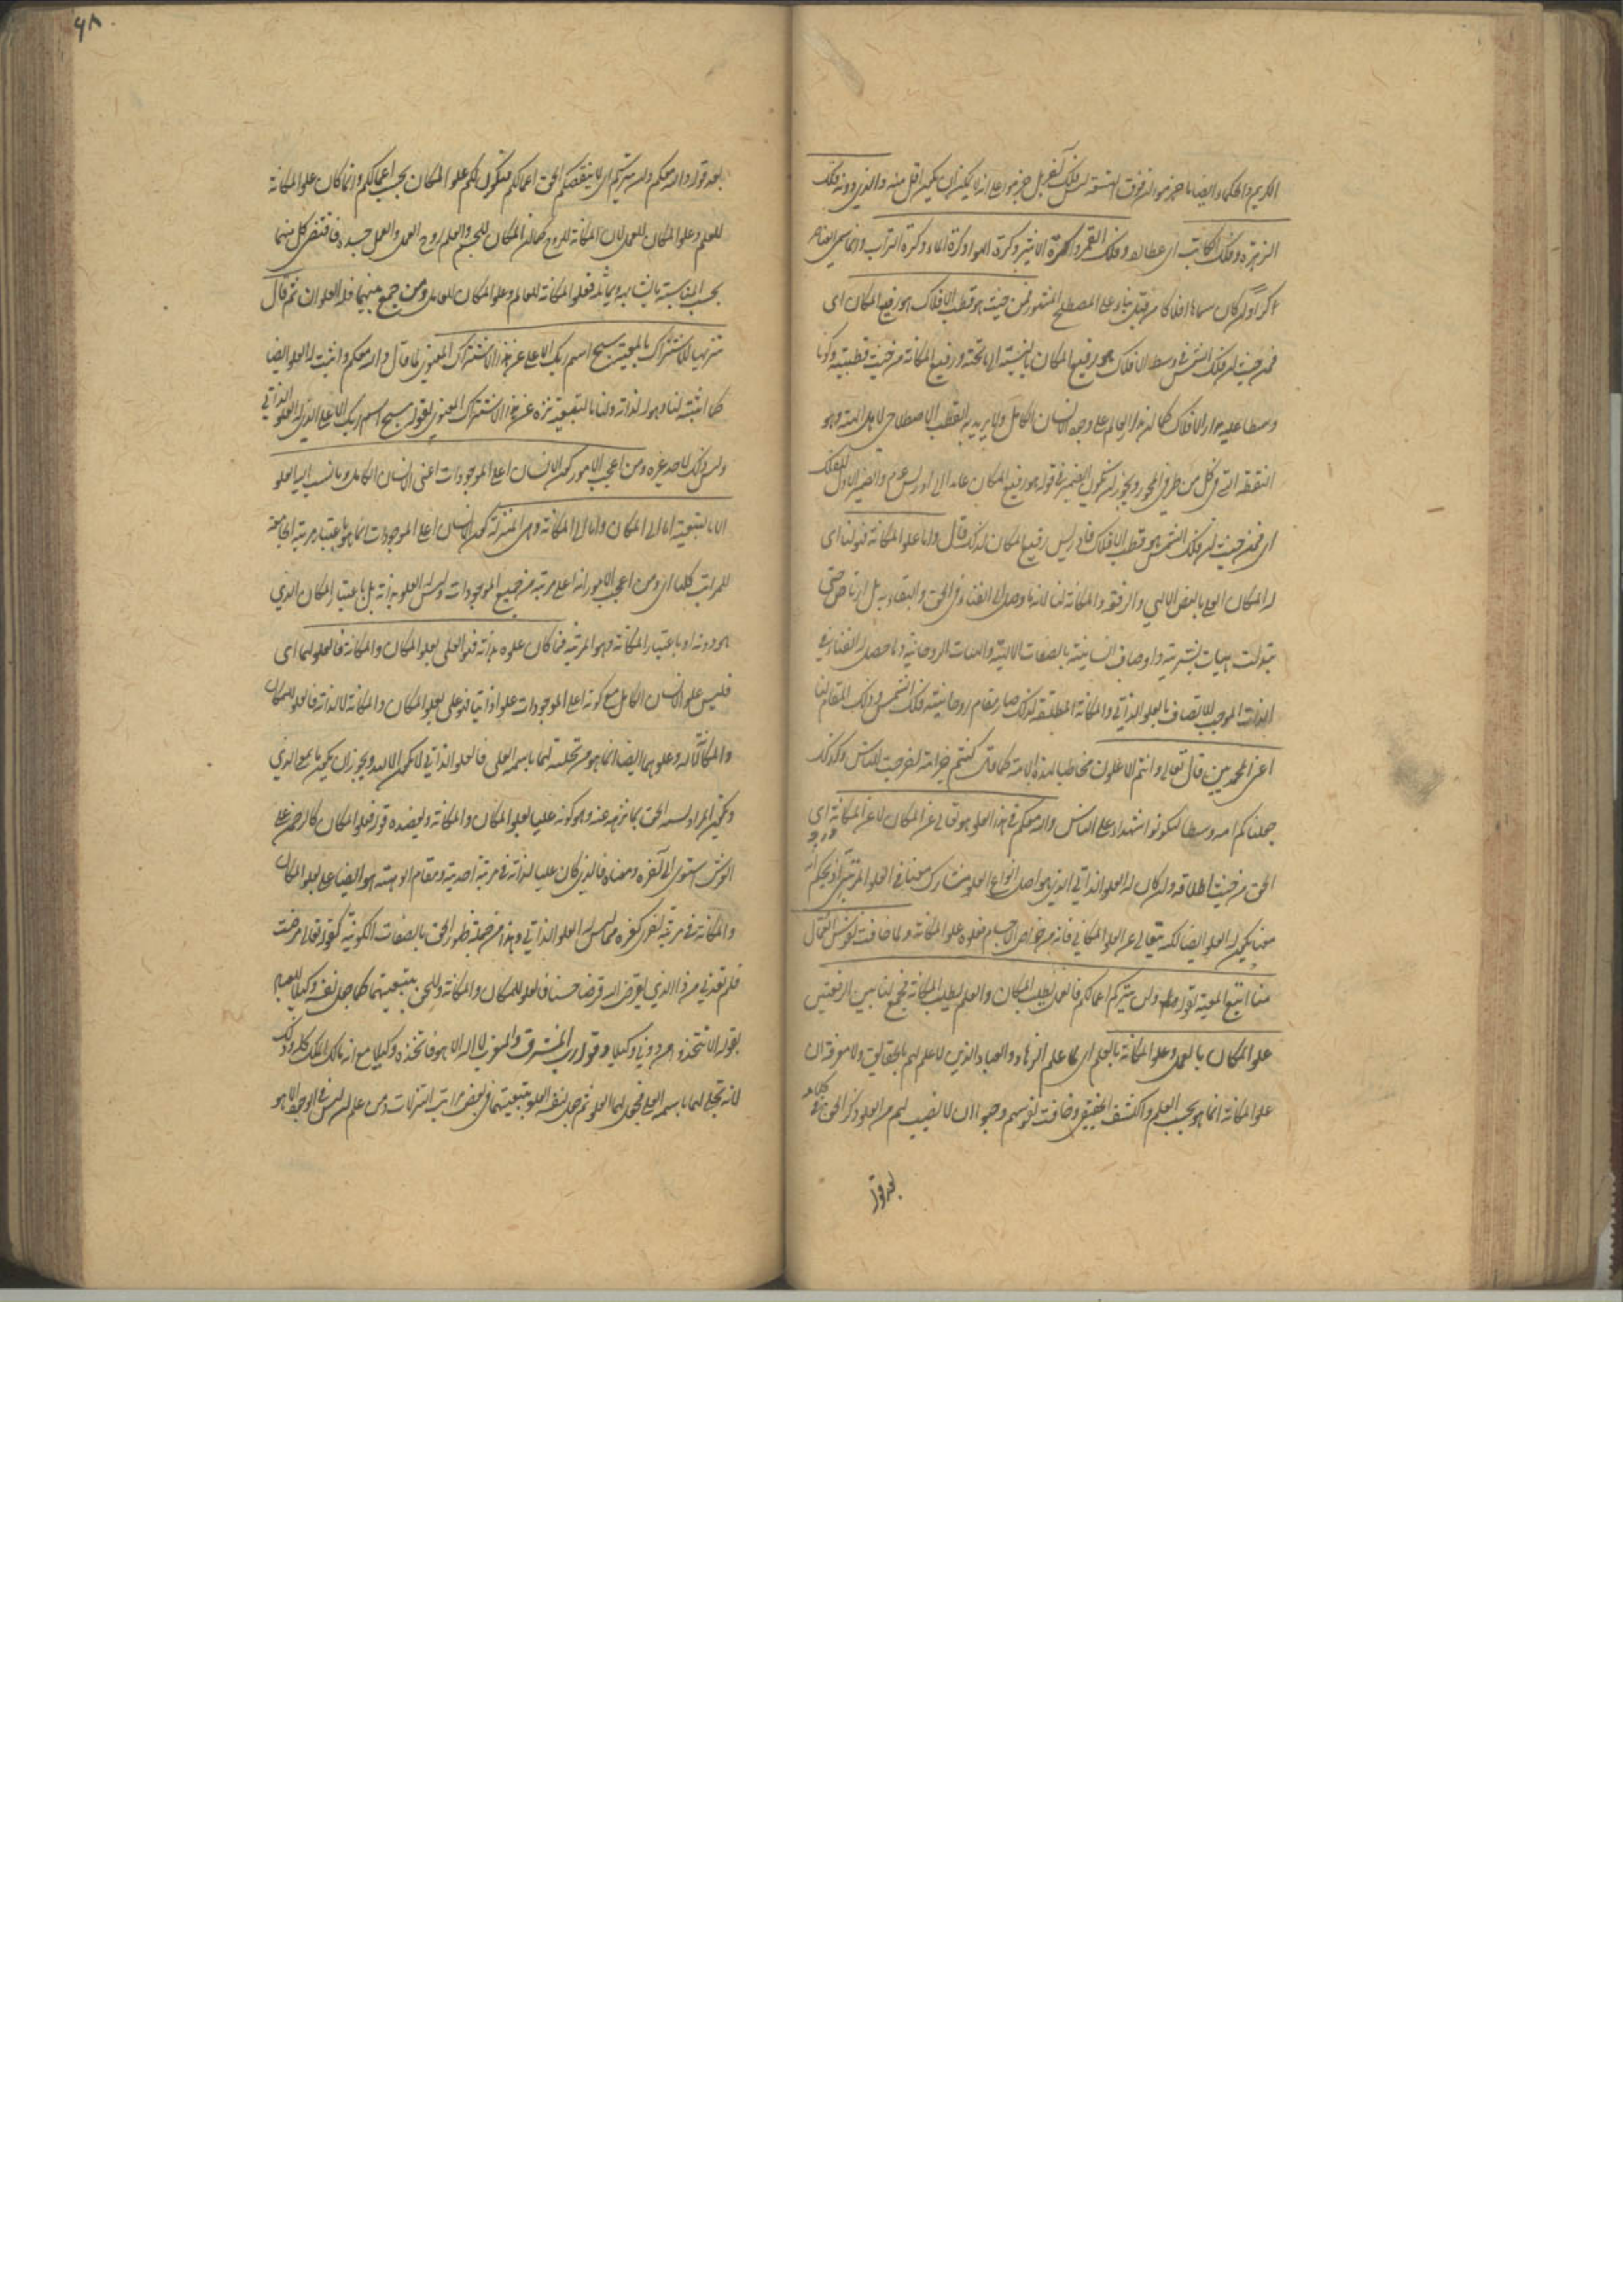 الكريم والحكماء ايضا ما جزموا ان فوق التسعة ليس فلك آخر بل جزموا على انه لا يمكن ان يكون اقل منه والذي دونه فلك
الزهرة وفلك الكاتب اى عطارد وفلك القمر وكرة الاثير وكرة الهواء وكرة الماء وكرة التراب وانما سمى العناصر
اكرا وان كان سماها افلاكا من قبل بناء على المصطلح المشهور فمن حيث هو قطب الافلاك هو رفيع المكان اى
فمن حيث ان فلك الشمس في وسط الافلاك هو رفيع المكان بالنسبة الى ما تحته ورفيع المكانة من حيث قطبيته وكونه
وسطا عليه مدار الافلاك كما ان مدار العالم على وجود الانسان الكامل ولا يريد به القطب الاصطلاحي لاهل الهيئة وهو
النقطة التي في كل من طرفي المحور ويجوز ان يكون الضمير في قوله هو رفيع المكان عائدا الى ادريس عم والضمير الاول للفلك
اى فمن حيث ان فلك الشمس هو قطب الافلاك فادريس رفيع المكان لذلك قال واما علو المكانة فهو لنا اى
له المكان العلي بالنص الالهي والرفعة والمكانة لنا لانه ما وصل الى الفناء في الحق والبقاء به بل ارتاض حتى
تبدلت هيات بشريته واوصاف انسانيته بالصفات الالهية والهيات الروحانية وما حصل له الفناء في
الذات الموجب للاتصاف بالعلو الذاتي والمكانة المطلقة لذلك صار مقام روحانيته فلك الشمس وذلك المقام لنا
اعني المحمديين قال تعالى وانتم الاعلون مخاطبا لهذه الامة كما قال كنتم خير امة اخرجت للناس وكذلك
جعلناكم امة وسطا لتكونوا شهداء على الناس والله معكم في هذا العلو وهو تعالى عن المكان لا عن المكانة اى
الحق من حيث اطلاقه وان كان له العلو الذاتي الذي هو اصل انواع العلو مشارك معنا في العلو المرتبي اذ بحكم انه
معنا يكون له العلو ايضا لكنه يتعالى عن العلو المكاني فانه من خواص الاجسام فعلوه علو المكانة ولما خافت نفوس العمال
منا اتبع المعية بقوله ولن يتركم اعمالكم فالعمل يطلب المكان والعلم يطلب المكانة فجمع لنا بين الرفعتين
علو المكان بالعمل وعلو المكانة بالعلم اى لما علم الزهاد والعباد الذين لا علم لهم بالحقايق ولا معرفة ان
علو المكانة انما هو بحسب العلم والكشف الحقيقي وخافت نفوسهم وحسبوا ان لا نصيب لهم من العلو ذكر الحق في كلامه
بعد قوله
٩٨
بعد قوله والله معكم ولن يتركم اى لا ينقصكم الحق اعمالكم فيكون لكم علو المكان بحسب اعمالكم وانما كان علو المكانة
للعلم وعلو المكان للعمل لان المكانة للروح كما ان المكان للجسم والعلم روح العمل والعمل جسده فاقتضى كل منهما
بحسب المناسبة ما يشابهه ويماثله فعلو المكانة للعالم وعلو المكان للعامل ومن جمع بينهما فله العلوان ثم قال
تنزيها للاشتراك بالمعية سبح اسم ربك الاعلى عن هذا الاشتراك المعنوي لما قال والله معكم واثبت له العلو ايضا
كما اثبته لنا وهو له لذاته ولنا بالتبعية نزه عن هذا الاشتراك المعنوي بقوله سبح اسم ربك الاعلى الذي له العلو الذاتي
وليس ذلك لاحد غيره ومن اعجب الامور كون الانسان اعلى الموجودات اعني الانسان الكامل وما نسب اليه العلو
الا بالتبعية اما الى المكان واما الى المكانة وهي المنزلة كون الانسان اعلى الموجودات انما هو باعتبار مرتبته الجامعة
للمراتب كلها اى ومن اعجب الامور انه اعلى مرتبة من جميع الموجودات وليس له العلو بذاته بل باعتبار المكان الذي
هو دونه او باعتبار المكانة وهو المرتبة فما كان علوه لذاته فهو العلي بعلو المكان والمكانة فالعلو لهما اى
فليس علو الانسان الكامل مع كونه اعلى الموجودات علوا ذاتيا فهو علي بعلو المكان والمكانة لا لذاته فالعلو للمكان
والمكانة لا له وعلوهما ايضا انما هو من تجليه لهما باسمه العلي فالعلو الذاتي لا يكون الا لله ويجوز ان يكون ما بمعنى الذي
ويكون المراد لله الحق بما نزه عنه وهو كونه عليا بعلو المكان والمكانة ويعضده قوله فعلو المكان كالرحمن على
العرش استوى الى آخره ومعناه فالذي كان عليا لذاته في مرتبة احديته ومقام الوهيته هو ايضا علي بعلو المكان
والمكانة في مرتبة اخرى كغيره مما ليس له العلو الذاتي وهذا من جملة ظهور الحق بالصفات الكونية كقوله تعالى مرضت
فلم تعدني من ذا الذي يقرض الله قرضا حسنا فالعلو للمكان والمكانة وللحق بتبعيتهما كما جعل نفسه وكيلا للعباد
بقوله الا تتخذوا من دوني وكيلا وقوله رب المشرق والمغرب لا اله الا هو فاتخذه وكيلا مع انه مالك الملك كله وذلك
لانه تجلى لهما باسمه العلي فجعل لهما العلو ثم جعل لنفسه العلو بتبعيتهما في بعض مراتب التنزلات ومن علم ان ليس في الوجود الا هو